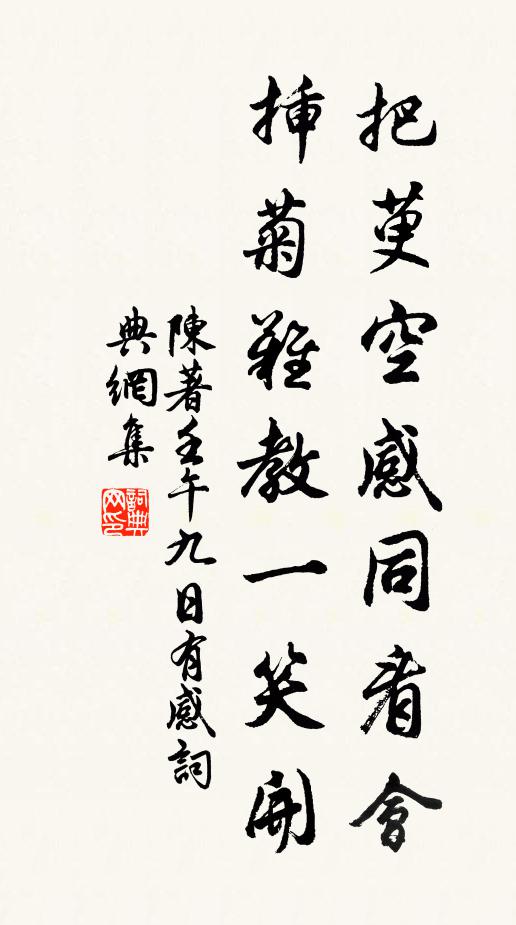 把萸空感同看會
插菊難教一笑開
陳著壬午九日有感詞
典網集
詞典
网印